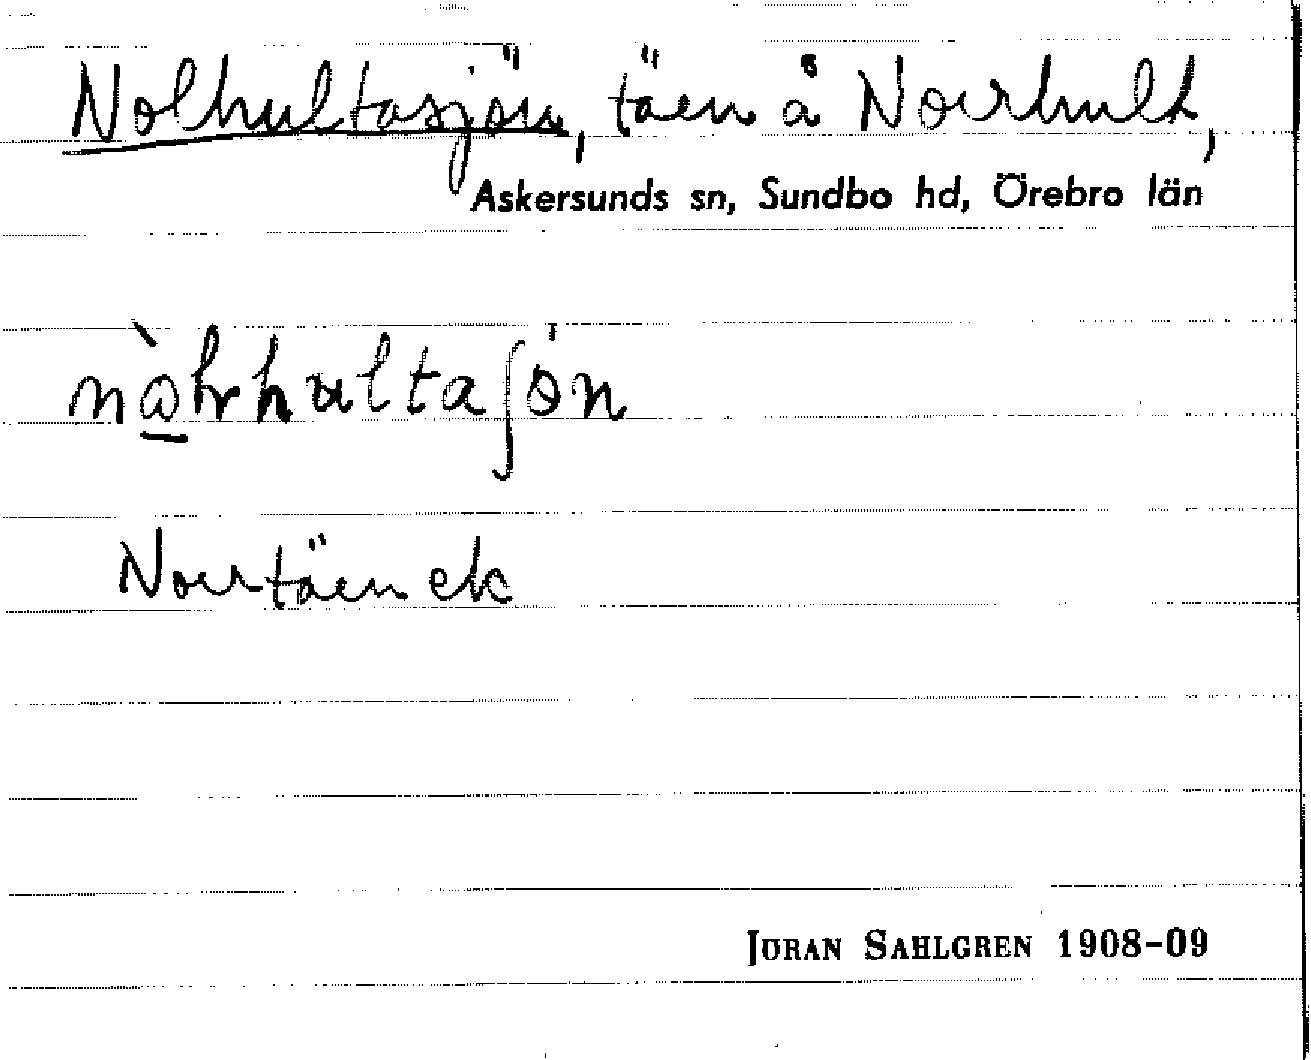 Nolhultasjön, täen å Norrhult,
Askersunds sn, Sundbo hd, Örebro län
nòhrhultaʃön
Norrtäen ek
JÖRAN SAHLGREN 1908-09